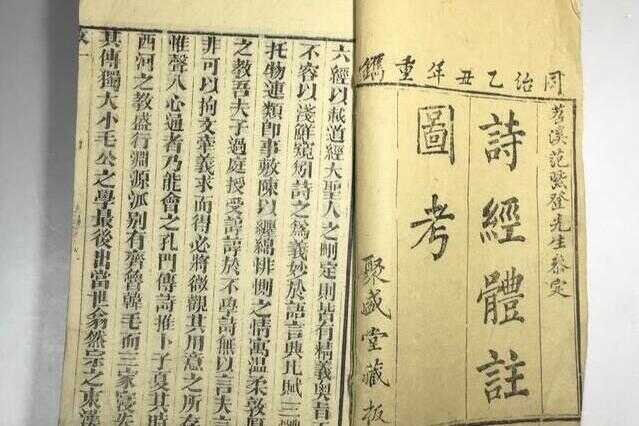 同治乙丑年重鐫
苕溪范紫登先生叅定
詩經體註
圖考
聚盛堂藏板
六經以載道經大聖人之刪定則皆有精義奧旨
不容以淺鮮窺矧詩之爲義妙於語言興比賦三
托物連類卽事敷陳以纏綿悱惻之情寓溫柔敦
之教吾夫子過庭授受諄諄於不學詩無以言夫言
非可以拘文牽義求而得必將微觀其用意之所存
惟聲入心通者乃能會之孔門傳詩推卜子夏其時
西河之教盛行淵源派别有齊魯韓毛而三家寖失
其傳獨大小毛公之學最後出當世翕然宗之東漢